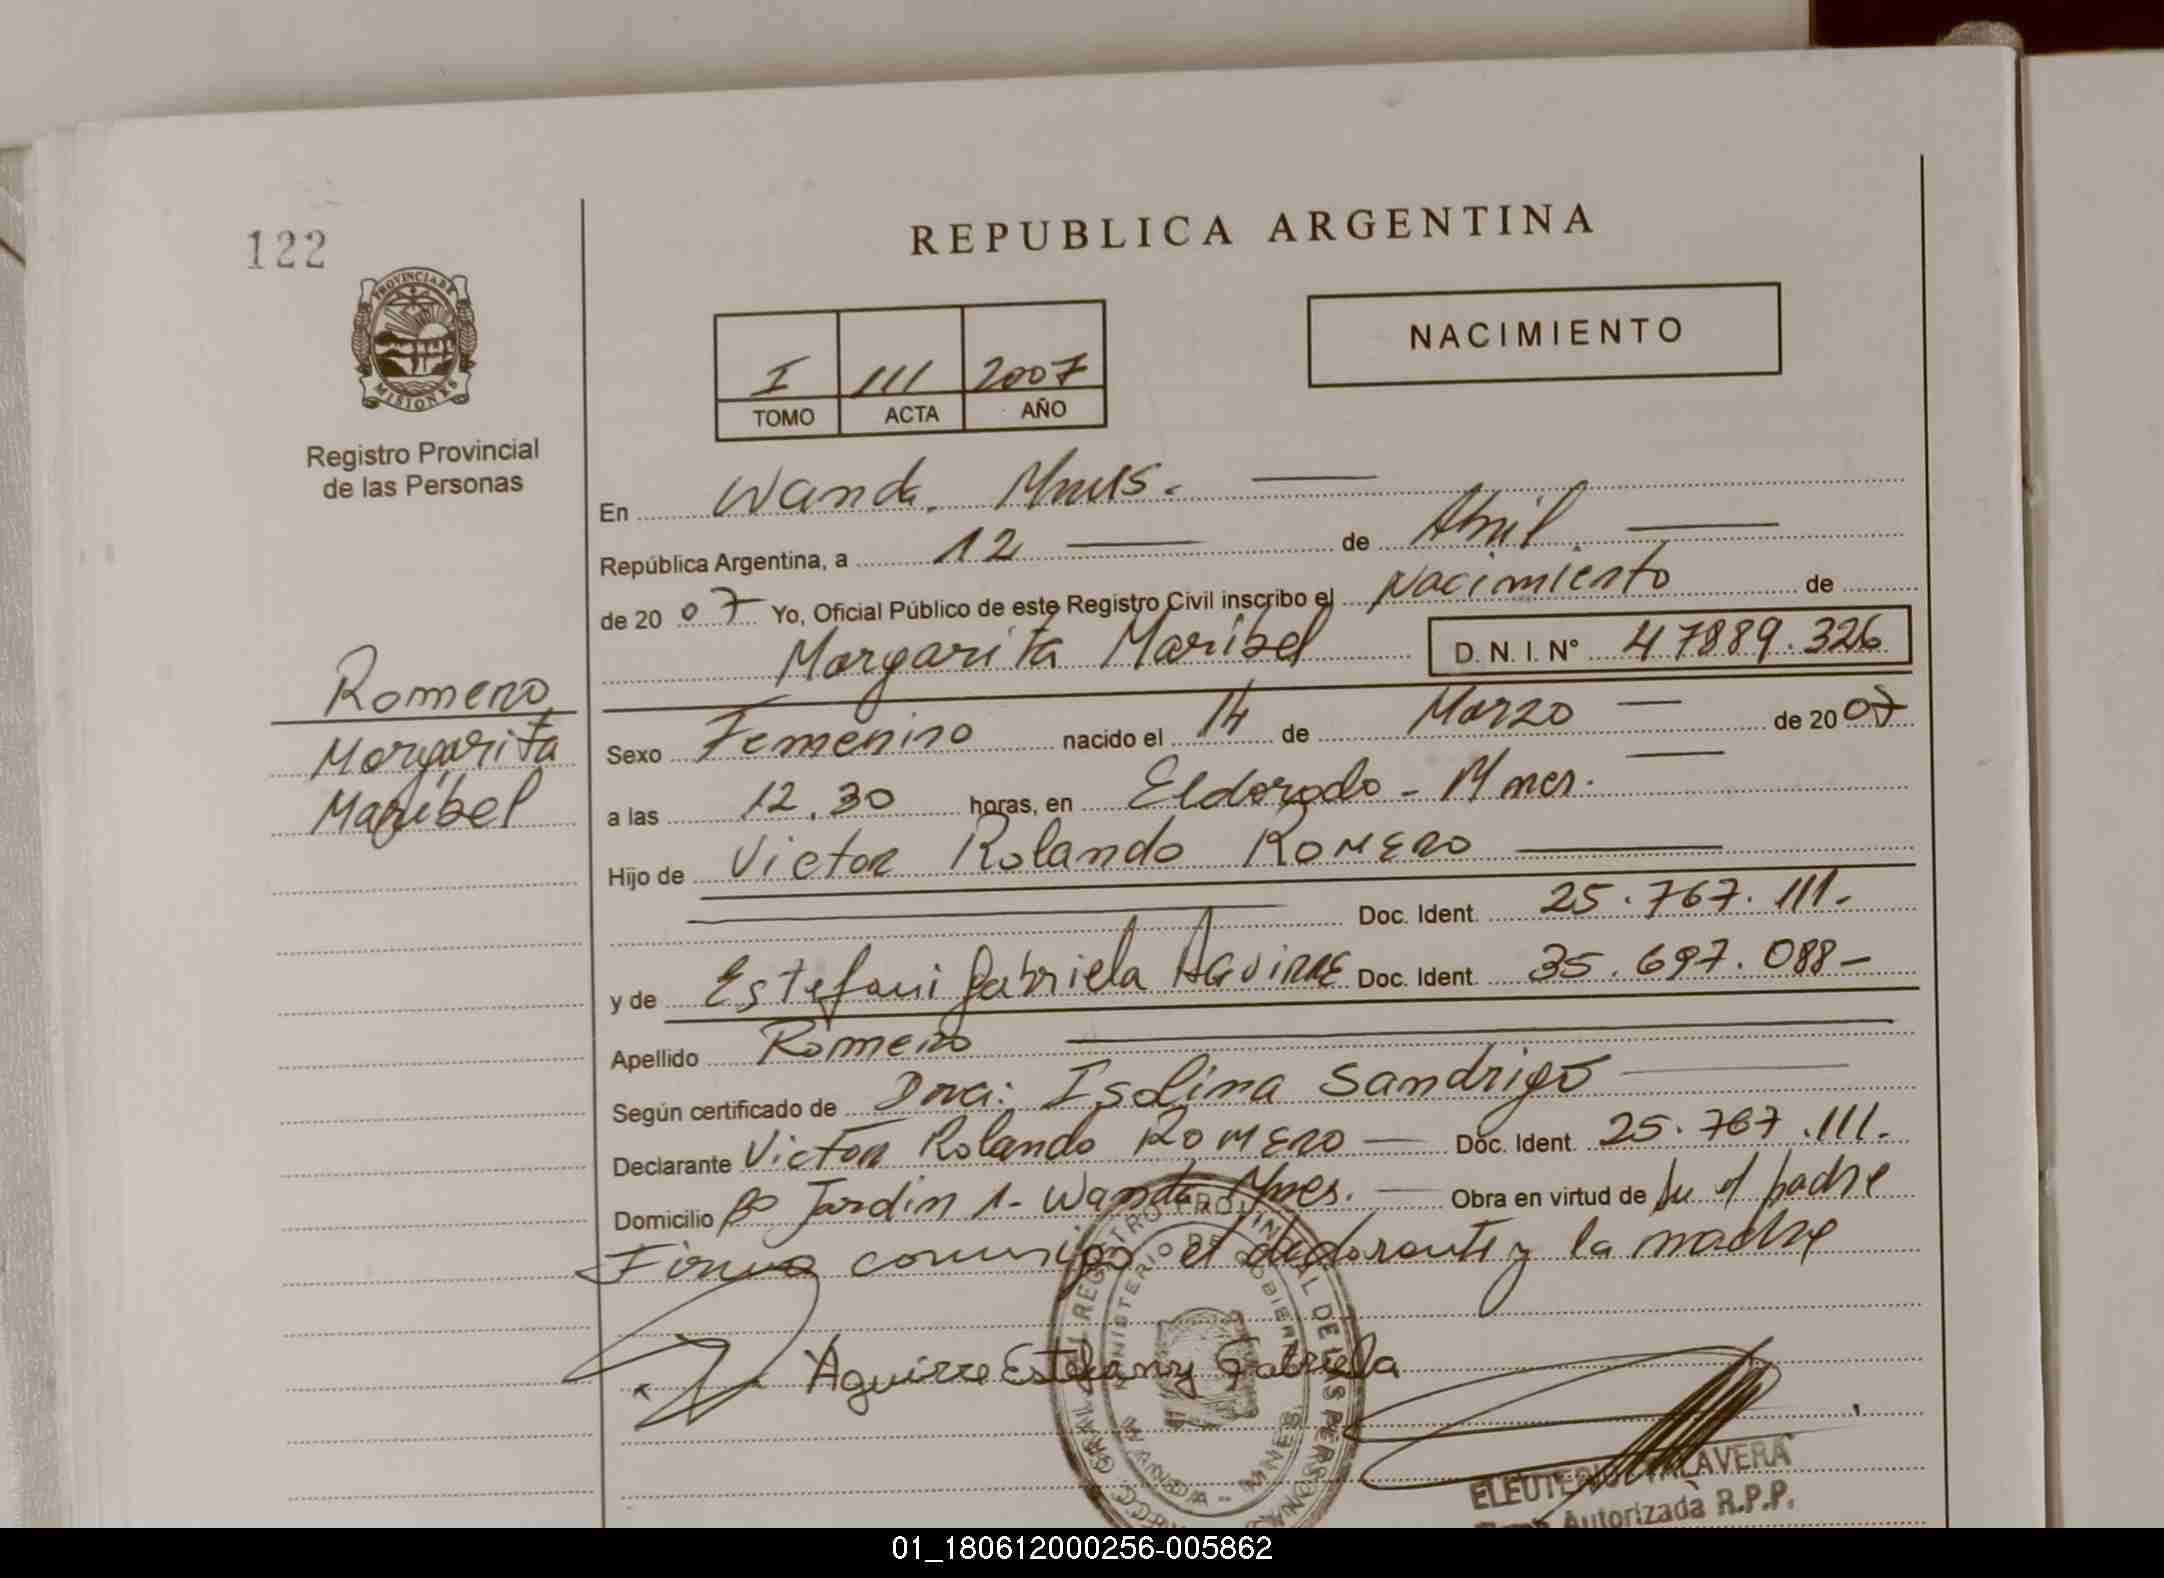 122
PROVINCIA DE
MISIONES
Registro Provincial
de las Personas
REPUBLICA ARGENTINA
NACIMIENTO
I 111 2007
TOMO ACTA AÑO
En Wanda. Mnes.
República Argentina, a 12 de Abril
de 2007 Yo, Oficial Público de este Registro Civil inscribo el Nacimiento de
Margarita Maribel D.N.I. Nº 47889.326
Romero
Margarita
Maribel
Sexo Femenino nacido el 14 de Marzo de 2007
a las 12,30 horas, en Eldorado - Mnes.
Hijo de Victor Rolando ROMERO
Doc. Ident. 25.767.111.-
y de Estefani Gabriela AGUIRRE Doc. Ident. 35.697.088-
Apellido Romero
Según certificado de Dra: Isolina Sandrigo
Declarante Victor Rolando ROMERO Doc. Ident. 25.767.111.
Domicilio Bº Jardin 1- Wanda Mnes. Obra en virtud de Su el padre
Firma conmigo el declarante y la madre
Aguirre Estefany Gabriela
REGISTRO PROVINCIAL DE LAS PERSONAS
MINISTERIO DE GOBIERNO
WANDA - MNES.
ELEUTERIO TALAVERA
Autorizada R.P.P.
01_180612000256-005862